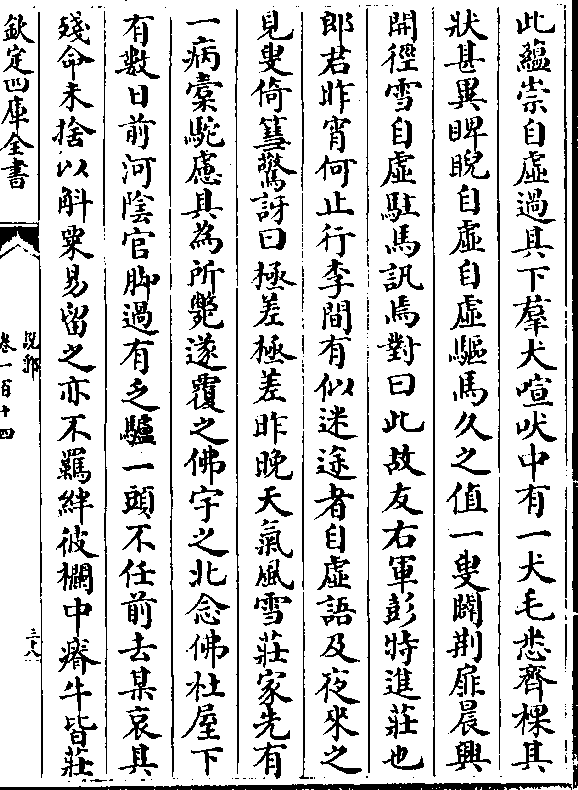 此蘊崇自虛過其下羣犬喧吠中有一犬毛悉齊裸其
狀甚異睥睨自虛自虛驅馬久之值一叟闢荆扉晨興
開徑雪自虛駐馬訊焉對曰此故友右軍彭特進莊也
郎君昨宵何止行李間有似迷途者自虛語及夜來之
見叟倚篲驚訝曰極差極差昨晚天氣風雪莊家先有
一病槖駝慮其為所斃遂覆之佛宇之北念佛社屋下
有數日前河陰官脚過有乏驢一頭不任前去某哀其
殘命未捨以斛粟易留之亦不羈絆彼欄中瘠牛皆莊
欽定四庫全書
說郛
卷一百十四